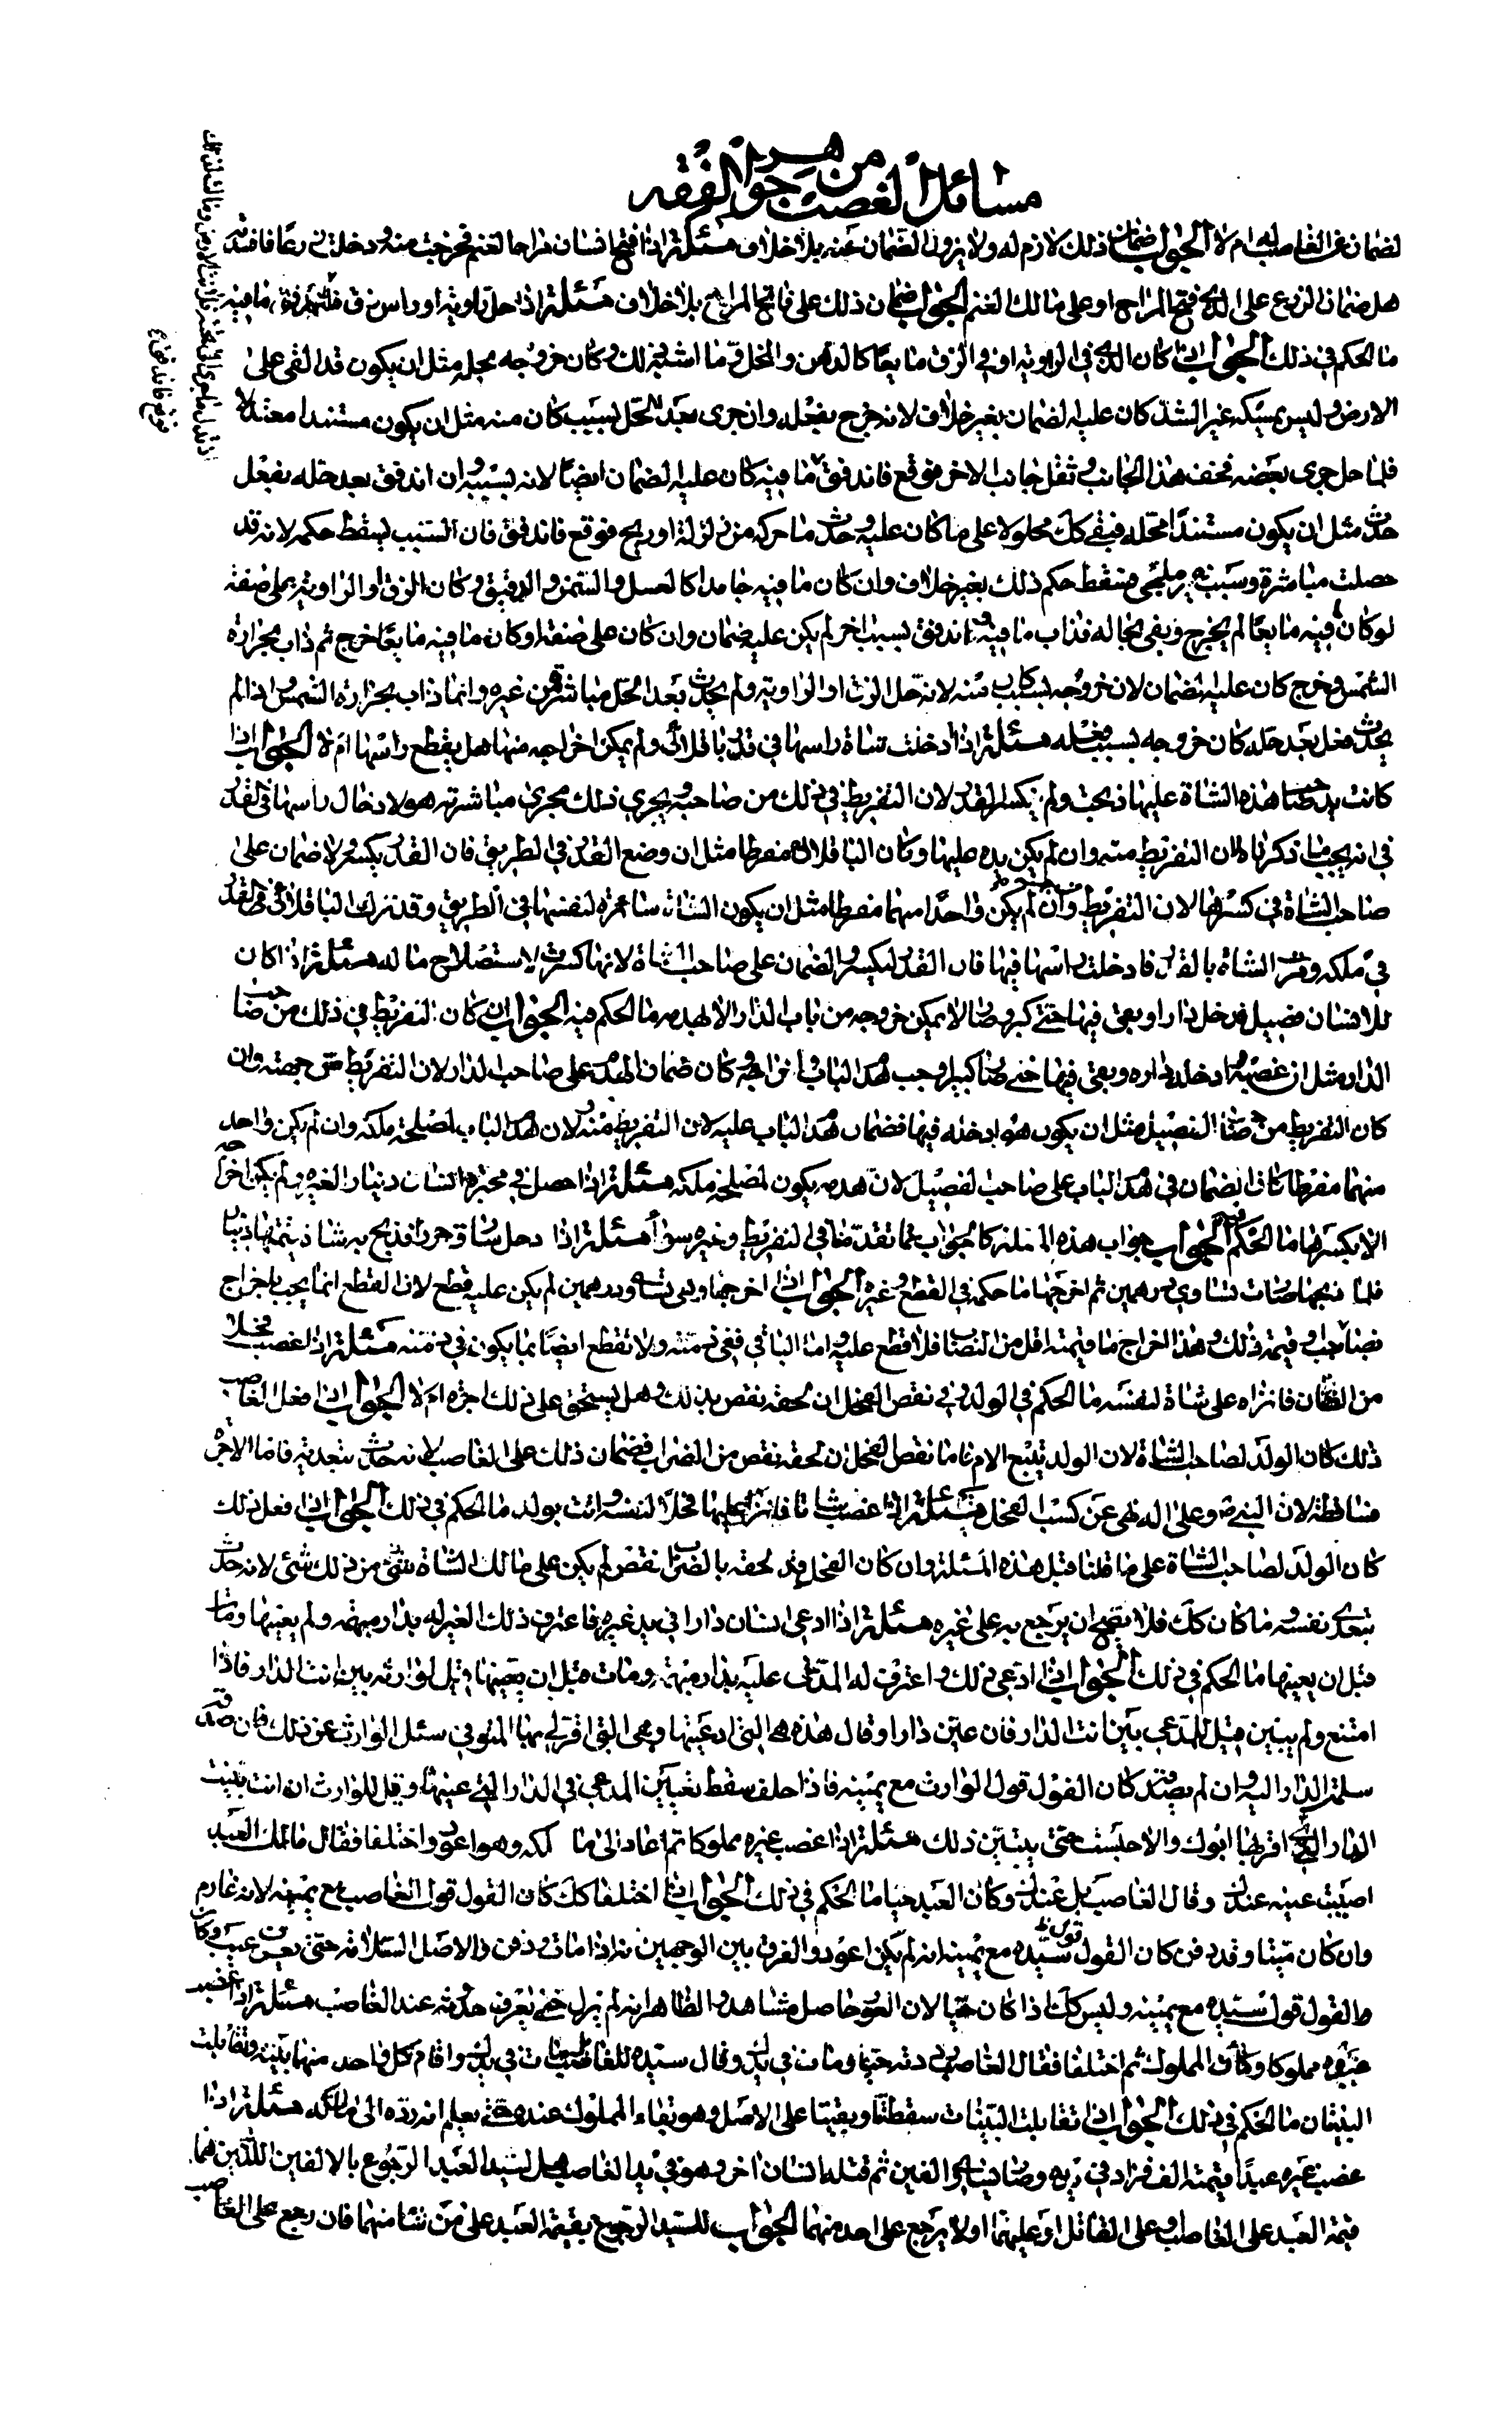 مسائل الغصب من جواهر الفقه
الضمان عن الغاصب ام لا الجواب ضمان ذلك لازم له ولا يزول الضمان عنه بلا خلاف مسئلة اذا فتح انسان مراحا لغنم فخرجت منه ودخلت زرعا فافسدته
هل ضمان الزرع على الذي فتح المراح او على مالك الغنم الجواب ضمان ذلك على فاتح المراح بلا خلاف مسئلة اذا حل زاوية او راس زق فاندفق ما فيه
ما الحكم في ذلك الجواب اذا كان الذي في الزاوية او في الزق مايعا كالدهن والخل وما اشبه ذلك وكان خروجه بحله مثل ان يكون قد القى على
الارض وليس يمسكه غير الشد كان عليه الضمان بغير خلاف لانه خرج بفعله وان جرى بعد الحل بسبب كان منه مثل ان يكون مستندا معتدلا
فلما حل جرى بعضه فخف هذا الجانب وثقل جانب الاخر فوقع فاندفق ما فيه كان عليه الضمان ايضا لانه بسببه وان اندفق بعد حله بفعل
حدث مثل ان يكون مستندا فحله فبقي كك محلولا على ما كان عليه وحدث ما حركه من زلزلة او ريح فوقع فاندفق فان السبب يسقط حكمه لانه قد
حصلت مباشرة وسبب غير ملجئ فسقط حكم ذلك بغير خلاف وان كان ما فيه جامدا كالعسل والسمن والدقيق وكان الزق او الزاوية على صفة
لو كان فيه مايعا لم يخرج وبقي بحاله فذاب ما فيه واندفق بسبب اخر لم يكن عليه ضمان وان كان على صفة لو كان ما فيه مايعا خرج ثم ذاب بحرارة
الشمس وخرج كان عليه الضمان لان خروجه بسبب كان منه لانه حل الزق او الزاوية ولم يحدث بعد الحل مباشرة من غيره وانما ذاب بحرارة الشمس اذا لم
يحدث فعل بعد حله كان خروجه بسبب فعله مسئلة اذا ادخلت شاة راسها في قدر باقلاني ولم يمكن اخراجه منها هل يقطع راسها ام لا الجواب اذا
كانت يد صاحب هذه الشاة عليها ذبحت ولم يكسر القدر لان التفريط في ذلك من صاحبها ويجري ذلك مجرى مباشرته هو لادخال راسها في القدر
في انه يجب ما ذكرناه لان التفريط منه وان لم يكن يده عليها وكان الباقلاني مفرطا مثل ان وضع القدر في الطريق فان القدر يكسر ولا ضمان على
صاحب الشاة في كسرها لان التفريط وان لم يكن واحدا منهما مفرطا مثل ان يكون الشاة سائرة لنفسها في الطريق وقد ترك الباقلاني القدر
في ملكه ومرت الشاة بالقدر فادخلت راسها فيها فان القدر يكسر والضمان على صاحب الشاة لانها كسرت لاستصلاح ماله مسئلة اذا كان
للانسان فصيل فدخل دارا وبقي فيها حتى كبر وصار لا يمكن خروجه من باب الدار الا بهدمه ما الحكم فيه الجواب ان كان التفريط في ذلك من صاحب
الدار مثل ان غصبه وادخله داره وبقي فيها حتى صار كبيرا وجب هدم الباب واخراجه وكان ضمان الهدم على صاحب الدار لان التفريط من جهته وان
كان التفريط من صاحب الفصيل مثل ان يكون هو ادخله فيها فضمان هدم الباب عليه لان التفريط منه ولان هدم الباب لمصلحة ملكه وان لم يكن واحد
منهما مفرطا كان الضمان في هدم الباب على صاحب الفصيل لان هدمه يكون لمصلحة ملكه مسئلة اذا حصل في محبرة انسان دينار لغيره ولم يمكن اخراجه
الا بكسرها ما الحكم فيه الجواب جواب هذه المسئلة كالجواب عما تقدمها في التفريط وغيره سواء مسئلة اذا دخل سارق حرزا فذبح فيه شاة قيمتها دينار
فلما ذبحها صارت تساوي درهمين ثم اخرجها ما حكمه في القطع وغيره الجواب اذا اخرجها وهي تساوي درهمين لم يكن عليه قطع لان القطع انما يجب باخراج
نصاب او قيمة ذلك وهذا اخراج ما قيمته اقل من النصاب فلا قطع عليه واما الباقي ففي ذمته ولا تقطع ايضا بما يكون في ذمته مسئلة اذا غصب فحلا
من الضان فانزاه على شاة لنفسه ما الحكم في الولد وفي نقص الفحل ان لحقه نقص بذلك وهل يستحق على ذلك اجرة ام لا الجواب اذا فعل الغاصب
ذلك كان الولد لصاحب الشاة لان الولد يتبع الام فاما نقص الفحل ان لحقه نقص من الضراب فضمان ذلك على الغاصب لانه حدث بتعديه فاما الاجرة
فساقطة لان النبي ص وعلى اله نهى عن كسب الفحل مسئلة اذا غصب شاة فانزى عليها فحلا لنفسه واتت بولد ما الحكم في ذلك الجواب اذا فعل ذلك
كان الولد لصاحب الشاة على ما قلنا قبل هذه المسئلة وان كان الفحل قد لحقه بالضراب نقص لم يكن على مالك الشاة شئ من ذلك شئ لانه حدث
بتعدي نفسه وما كان كك فلا يصح ان يرجع به على غيره مسئلة اذا ادعى انسان دارا في يد غيره فاعترف ذلك الغير له بدار مبهمة ولم يعينها ومات
قبل ان يعينها ما الحكم في ذلك الجواب اذا ادعى ذلك واعترف له المدعى عليه بدار مبهمة ومات قبل ان يعينها قيل لوارثه بين انت الدار فاذا
امتنع ولم يبين قيل للمدعي بين انت الدار فان عين دارا وقال هذه هي التي ادعيتها وهي التي اقر لي بها المتوفي سئل الوارث عن ذلك فان صدقه
سلمت الدار اليه وان لم يصدقه كان القول قول الوارث مع يمينه فاذا حلف سقط تعيين المدعي في الدار التي عينها وقيل للوارث ان انت بينت
الدار التي اقر بها ابوك والا حبست حتى يبين ذلك مسئلة اذا غصب غيره مملوكا ثم اعاد الى مالكه وهو اعور واختلفا فقال مالك العبد
اصيبت عينه عندك وقال الغاصب بل عندك وكان العبد حيا ما الحكم في ذلك الجواب اذا اختلفا كك كان القول قول الغاصب مع يمينه لانه غارم
وان كان ميتا وقد دفن كان القول قول سيده مع يمينه انه لم يكن اعور والفرق بين الوجهين انه اذا مات ودفن فالاصل السلامة حتى يعرف عيب وكان
القول قول سيده مع يمينه وليس كك اذا كان حيا لان العور حاصل مشاهد والظاهر انه لم يزل حتى يعرف حدوثه عند الغاصب مسئلة اذا غصب
غيره مملوكا وكان المملوك ثم اختلفا فقال الغاصب رددته حيا ومات في يدك وقال سيده للغاصب مات في يدك واقام كل واحد منهما بينة وتقابلت
البينتان ما الحكم في ذلك الجواب اذا تقابلت البينتان سقطتا وبقيتا على الاصل وهو بقاء المملوك عنده حتى يعلم انه رده الى مالكه مسئلة اذا
غصب غيره عبدا قيمته الف فزاد في يده وصار يساوي الفين ثم قتله انسان اخر وهو في يد الغاصب هل لسيد العبد الرجوع بالالفين اللذين هما
قيمة العبد على الغاصب او على القاتل او عليهما او لا يرجع على احد منهما الجواب للسيد الرجوع بقيمة العبد على من شاء منهما فان رجع على الغاصب
فوقع فاندفق ع